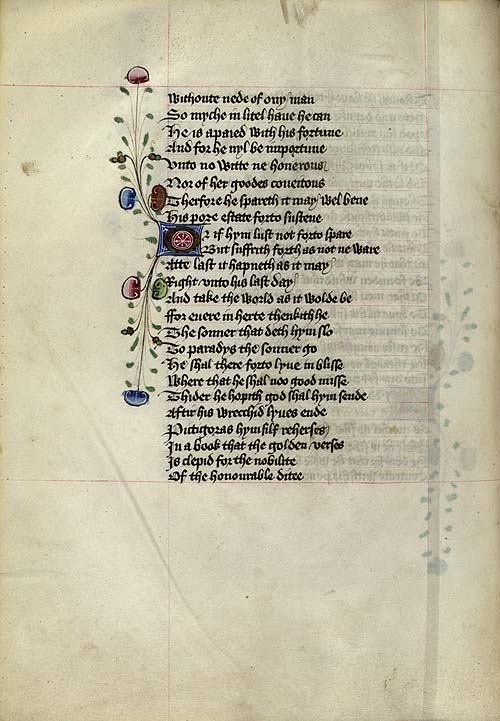 Withoute nede of ony man
So myche in litel haue he can
He is apared with his fortune
And for he nyl be importune
Vnto no witte ne honerous
Nor of her goodes coueitous
Therfore he spareth it may wel bene
His pore estate forto sustene
Or if hym lust not forto spare
But suffrith forth as not ne ware
Atte last it hapneth as it may
Right vnto his last day
And take the world as it wolde be
ffor euere in herte thenkith he
The sonner that deth hym slo
To paradys the sonner go
He shal there forto lyue in blisse
Where that he shal noo good misse
Thider he hopith god shal hym sende
Aftir his wrecchid lyues ende
Pictigoras hymsilf reherses
In a book that the golden verses
Is clepid for the nobilite
Of the honourable ditee